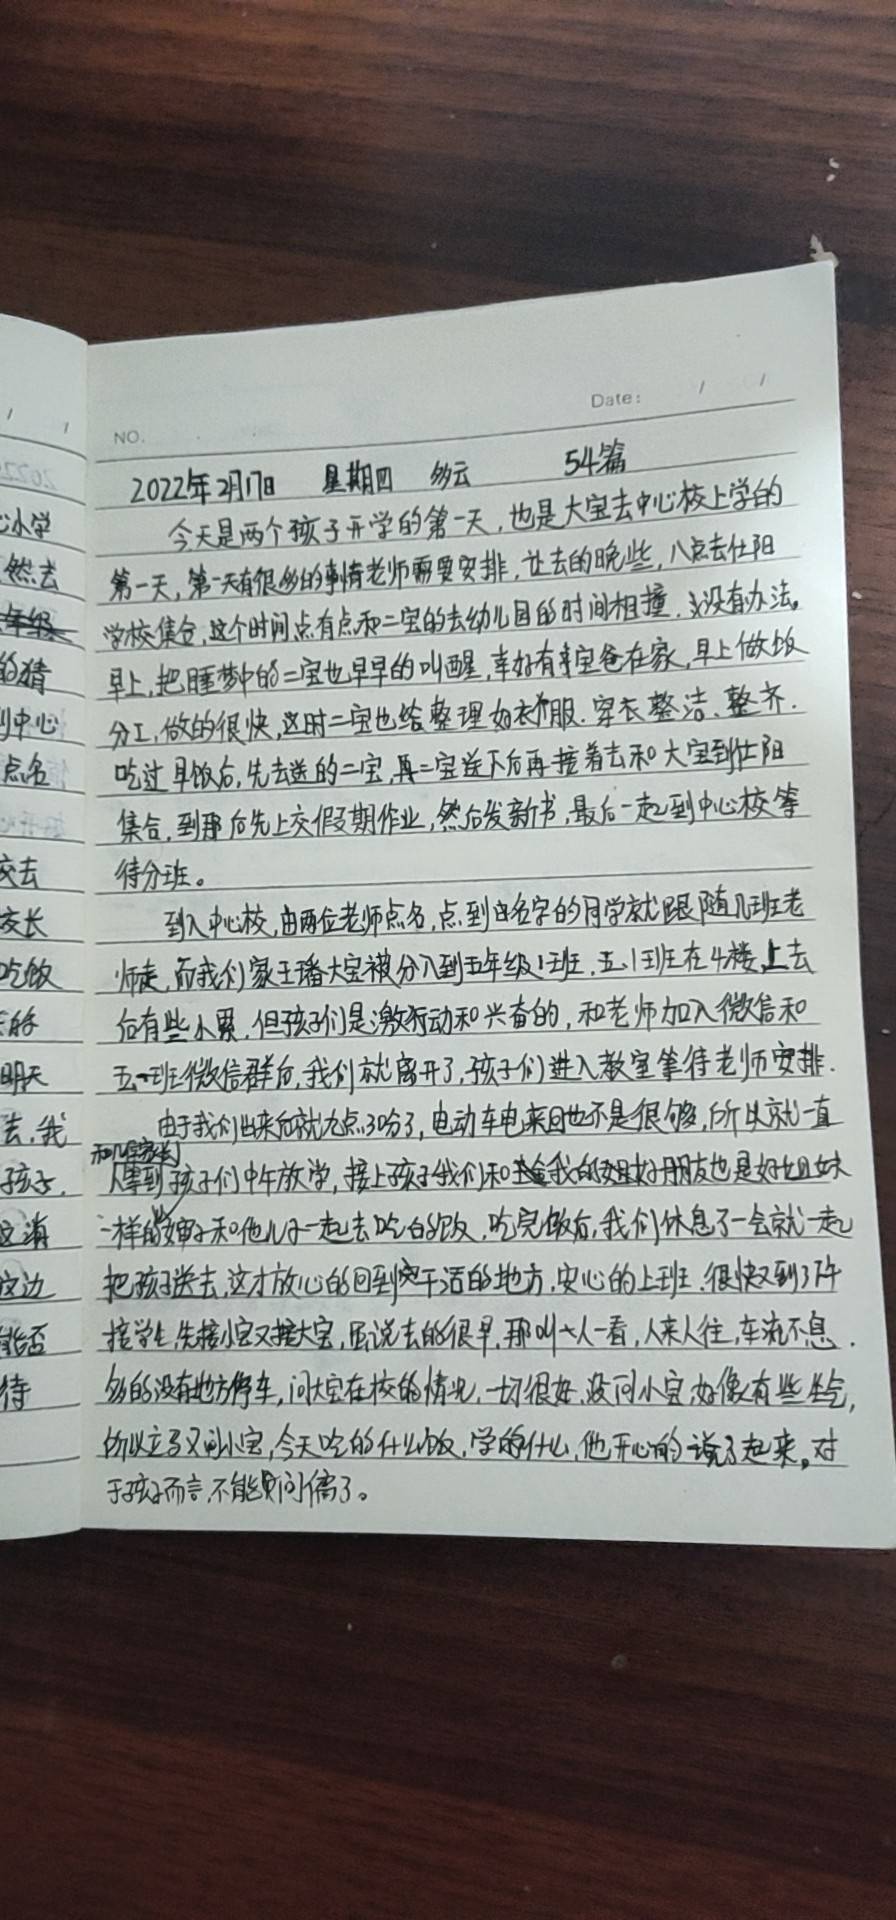 NO.
Date: / /
2022年2月17日 星期四 多云 54篇
今天是两个孩子开学的第一天，也是大宝去中心校上学的
第一天，第一天有很多的事情老师需要安排，让去的晚些，八点去仕阳
学校集合，这个时间点有点和二宝的去幼儿园的时间相撞，没有办法。
早上，把睡梦中的二宝也早早的叫醒，幸好有宝爸在家，早上做饭
分工，做的很快，这时二宝也给整理好衣服，穿衣整洁、整齐.
吃过早饭后，先去送的二宝，再二宝送下后再接着去和大宝到仕阳
集合，到那后先上交假期作业，然后发新书，最后一起到中心校等
待分班。
到入中心校，由两位老师点名，点到名字的同学就跟随几班老
师走，而我们家王璠大宝被分入到五年级1班，五.1班在4楼，上去
后有些小累，但孩子们是激动和兴奋的，和老师加入微信和
五一班微信群后，我们就离开了，孩子们进入教室等待老师安排.
由于我们出来后就九点30分了，电动车电来回也不是很够，所以就一直
等到孩子们中午放学，接上孩子我们和我的好朋友也是好姐妹
一样的婶子和他儿子一起去吃的饭，吃完饭后，我们休息了一会就一起
把孩子送去，这才放心的回到干活的地方，安心的上班，很快又到了下午
接学生，先接小宝又接大宝，虽说去的很早，那叫一人一看，人来人往，车流不息.
多的没有地方停车，问大宝在校的情况，一切很好，没问小宝，好像有些生气，
所以立马又问小宝，今天吃的什么饭，学的什么，他开心的说了起来。对
于孩子而言，不能只问偏了。
小学
然去
的猜
到中心
点名
校去
校长
吃饭
明天
去，我
孩子.
这边
能否
待